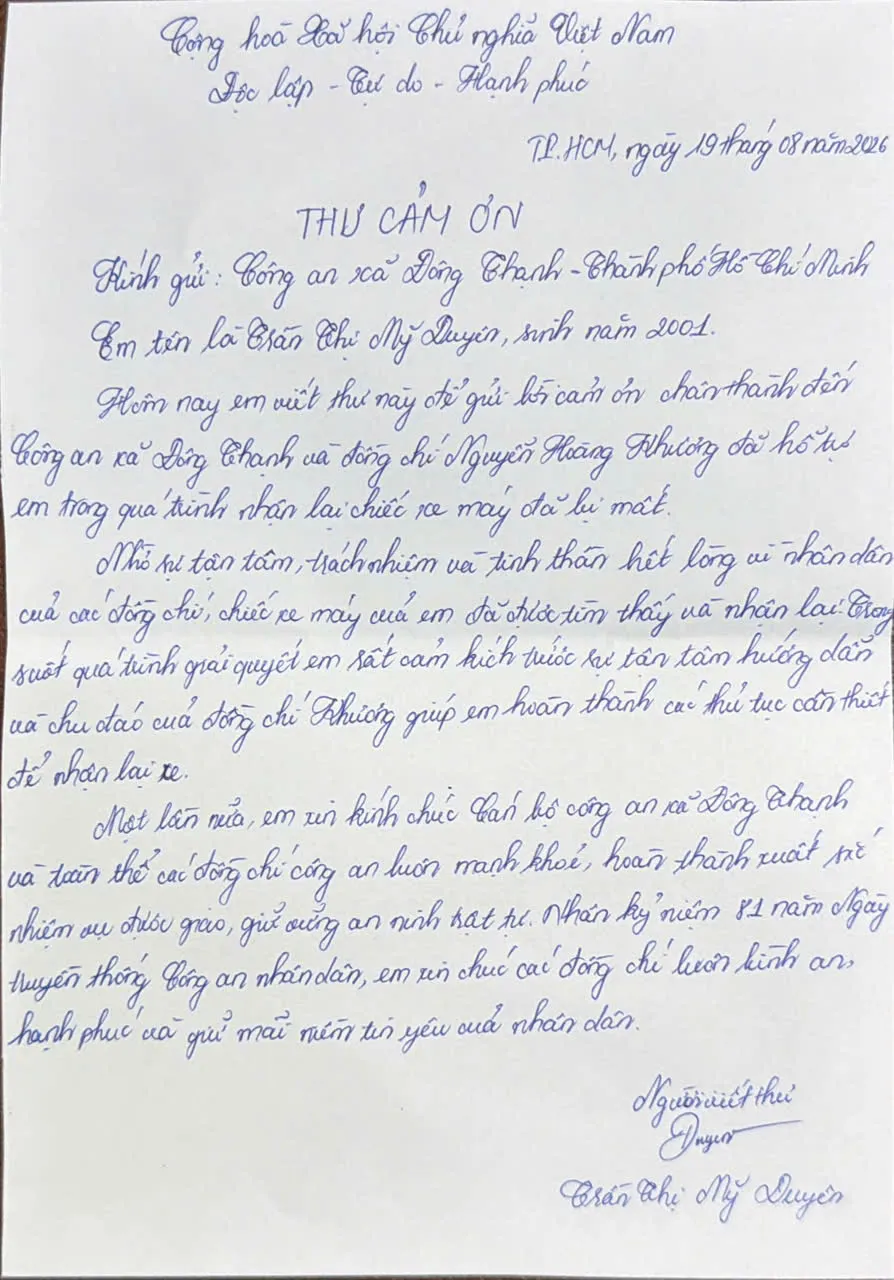 Cộng hoà Xã hội Chủ nghĩa Việt Nam
Độc lập - Tự do - Hạnh phúc
TP.HCM, ngày 19 tháng 08 năm 2026
THƯ CẢM ƠN
Kính gửi: Công an xã Đông Thạnh - Thành phố Hồ Chí Minh
Em tên là Trần Thị Mỹ Duyên, sinh năm 2001.
Hôm nay em viết thư này để gửi lời cảm ơn chân thành đến
Công an xã Đông Thạnh và đồng chí Nguyễn Hoàng Khương đã hỗ trợ
em trong quá trình nhận lại chiếc xe máy đã bị mất.
Nhờ sự tận tâm, trách nhiệm và tinh thần hết lòng vì nhân dân
của các đồng chí, chiếc xe máy của em đã được tìm thấy và nhận lại. Trong
suốt quá trình giải quyết em rất cảm kích trước sự tận tâm hướng dẫn
và chu đáo của đồng chí Khương giúp em hoàn thành các thủ tục cần thiết
để nhận lại xe.
Một lần nữa, em xin kính chúc Cán bộ công an xã Đông Thạnh
và toàn thể các đồng chí công an luôn mạnh khoẻ, hoàn thành xuất sắc
nhiệm vụ được giao, giữ vững an ninh trật tự. Nhân kỷ niệm 81 năm Ngày
truyền thống Công an nhân dân, em xin chúc các đồng chí luôn bình an,
hạnh phúc và giữ mãi niềm tin yêu của nhân dân.
Người viết thư
Duyên
Trần Thị Mỹ Duyên